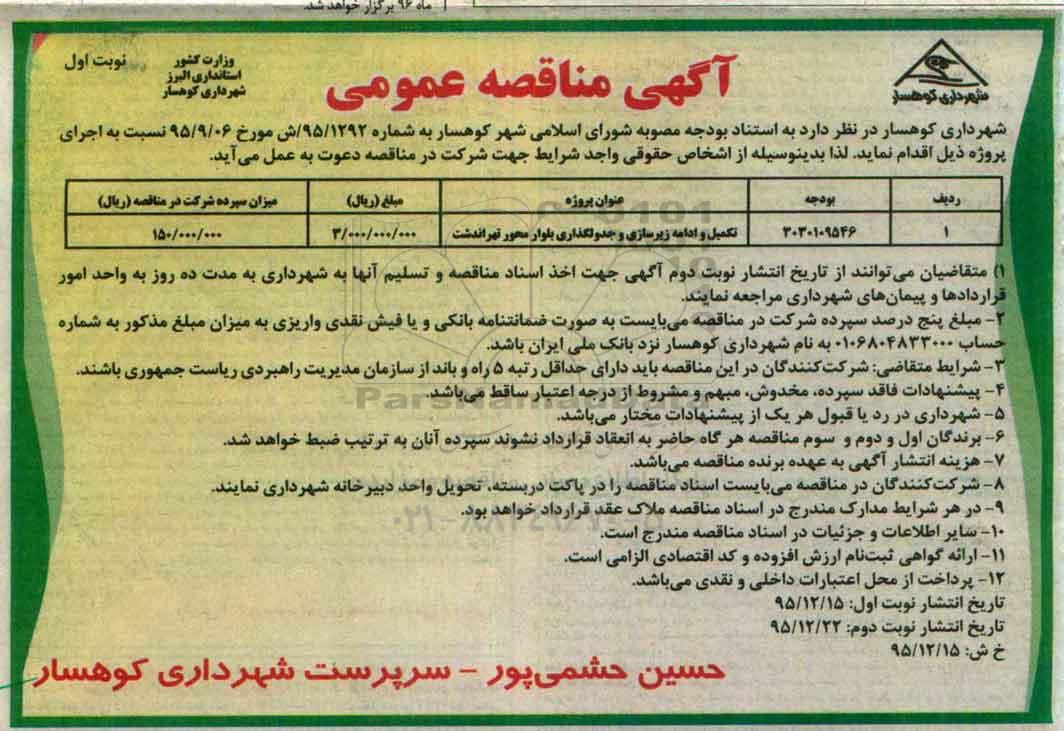 ماه ۹۶ برگزار خواهد شد.
شهرداری کوهسار
آگهی مناقصه عمومی
وزارت کشور
استانداری البرز
شهرداری کوهسار
نوبت اول
شهرداری کوهسار در نظر دارد به استناد بودجه مصوبه شورای اسلامی شهر کوهسار به شماره ۹۵/۱۲۹۲/ش مورخ ۹۵/۹/۰۶ نسبت به اجرای
پروژه ذیل اقدام نماید. لذا بدینوسیله از اشخاص حقوقی واجد شرایط جهت شرکت در مناقصه دعوت به عمل می‌آید.
ردیف بودجه عنوان پروژه مبلغ (ریال) میزان سپرده شرکت در مناقصه (ریال)
۱ ۳۰۳۰۱۰۹۵۴۶ تکمیل و ادامه زیرسازی و جدولگذاری بلوار محور تهراندشت ۳/۰۰۰/۰۰۰/۰۰۰ ۱۵۰/۰۰۰/۰۰۰
۱) متقاضیان می‌توانند از تاریخ انتشار نوبت دوم آگهی جهت اخذ اسناد مناقصه و تسلیم آنها به شهرداری به مدت ده روز به واحد امور
قراردادها و پیمان‌های شهرداری مراجعه نمایند.
۲- مبلغ پنج درصد سپرده شرکت در مناقصه می‌بایست به صورت ضمانتنامه بانکی و یا فیش نقدی واریزی به میزان مبلغ مذکور به شماره
حساب ۰۱۰۶۸۰۴۸۳۳۰۰۰ به نام شهرداری کوهسار نزد بانک ملی ایران باشد.
۳- شرایط متقاضی: شرکت‌کنندگان در این مناقصه باید دارای حداقل رتبه ۵ راه و باند از سازمان مدیریت راهبردی ریاست جمهوری باشند.
۴- پیشنهادات فاقد سپرده، مخدوش، مبهم و مشروط از درجه اعتبار ساقط می‌باشد.
۵- شهرداری در رد یا قبول هر یک از پیشنهادات مختار می‌باشد.
۶- برندگان اول و دوم و سوم مناقصه هر گاه حاضر به انعقاد قرارداد نشوند سپرده آنان به ترتیب ضبط خواهد شد.
۷- هزینه انتشار آگهی به عهده برنده مناقصه می‌باشد.
۸- شرکت‌کنندگان در مناقصه می‌بایست اسناد مناقصه را در پاکت دربسته، تحویل واحد دبیرخانه شهرداری نمایند.
۹- در هر شرایط مدارک مندرج در اسناد مناقصه ملاک عقد قرارداد خواهد بود.
۱۰- سایر اطلاعات و جزئیات در اسناد مناقصه مندرج است.
۱۱- ارائه گواهی ثبت‌نام ارزش افزوده و کد اقتصادی الزامی است.
۱۲- پرداخت از محل اعتبارات داخلی و نقدی می‌باشد.
تاریخ انتشار نوبت اول: ۹۵/۱۲/۱۵
تاریخ انتشار نوبت دوم: ۹۵/۱۲/۲۲
خ ش: ۹۵/۱۲/۱۵
حسین حشمی‌پور – سرپرست شهرداری کوهسار